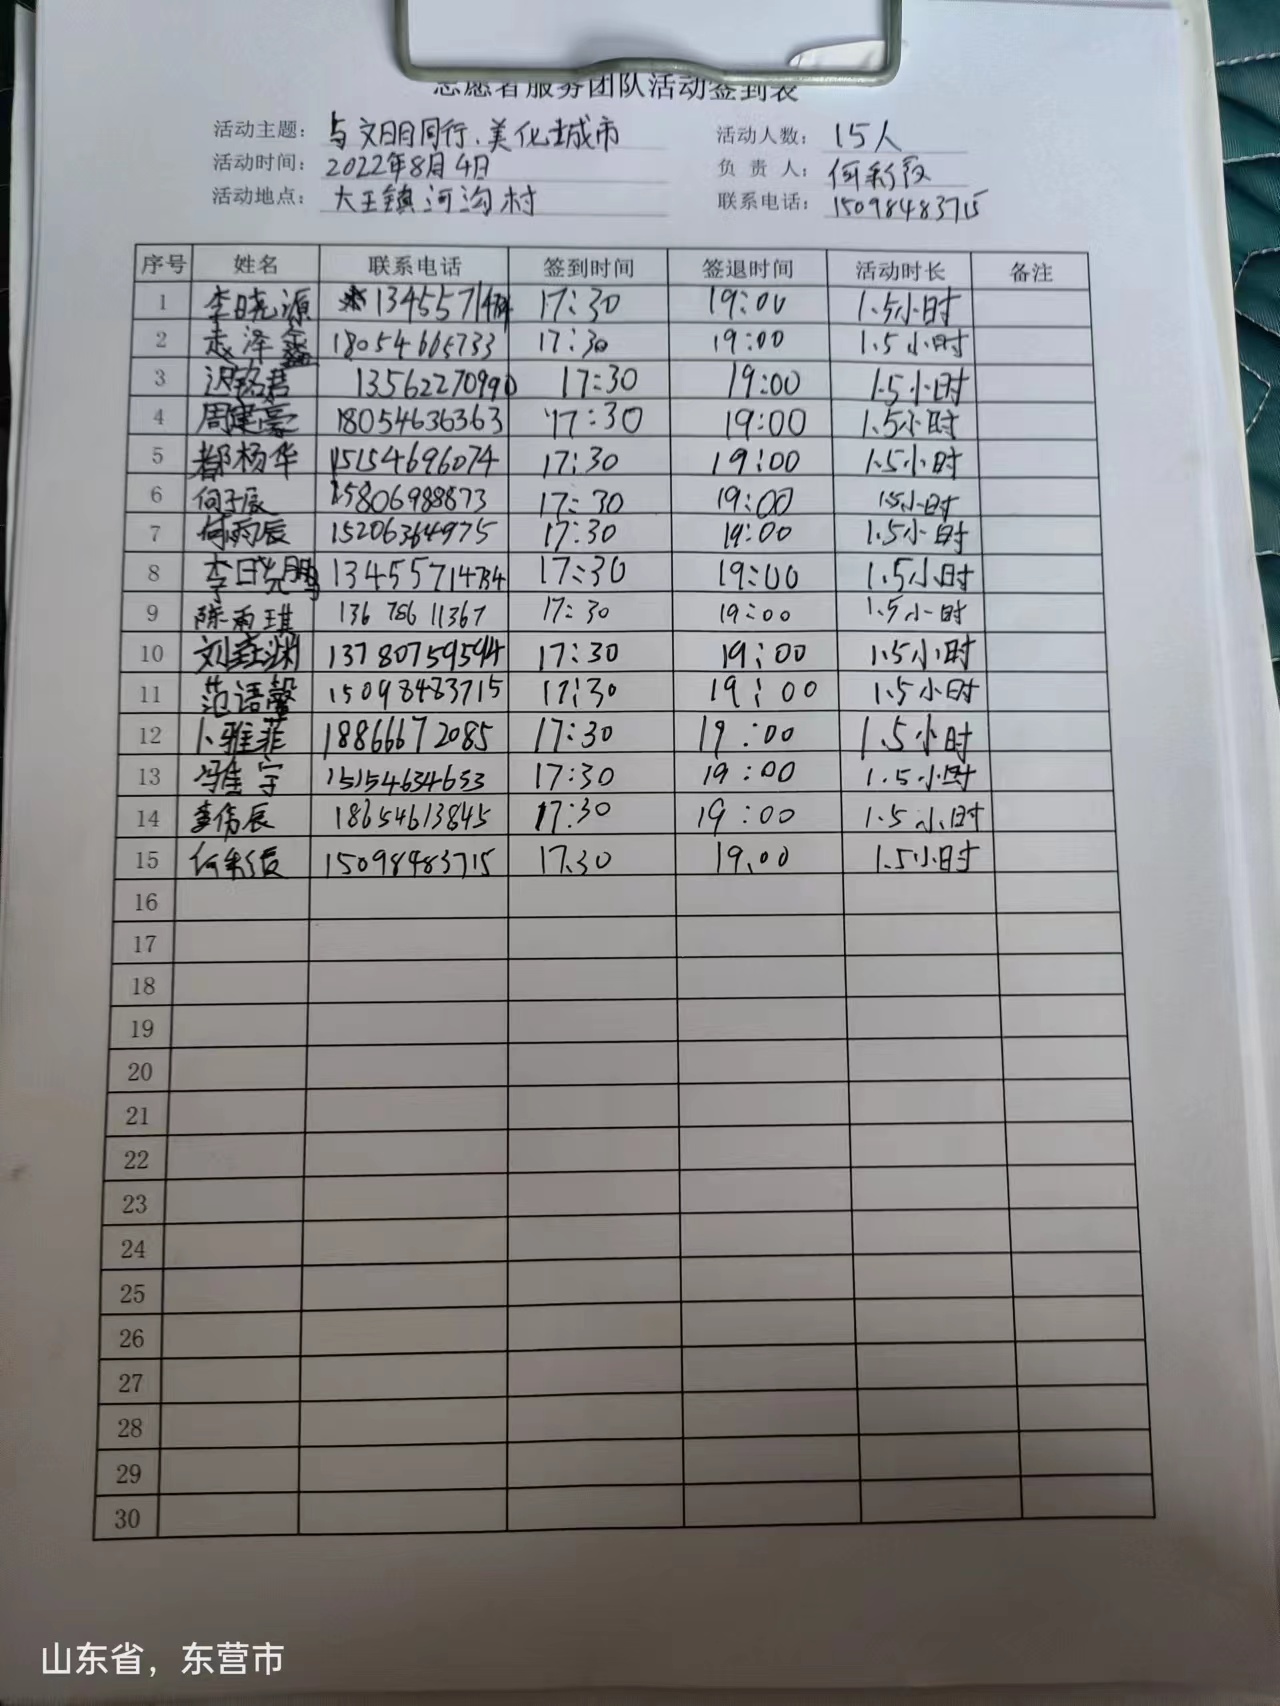 志愿者服务团队活动签到表
活动主题： 与文明同行、美化城市 活动人数： 15人
活动时间： 2022年8月4日 负 责 人： 何彩
活动地点： 大王镇河沟村 联系电话： 15098483715
序号 姓名 联系电话 签到时间 签退时间 活动时长 备注
1 李晓源 134557147 17:30 19:00 1.5小时
2 赵泽鑫 18054665733 17:30 19:00 1.5小时
3 迟铭君 13562270990 17:30 19:00 1.5小时
4 周建豪 18054636363 17:30 19:00 1.5小时
5 都杨华 15154696074 17:30 19:00 1.5小时
6 何子辰 15806988873 17:30 19:00 1.5小时
7 何雨辰 15206364975 17:30 19:00 1.5小时
8 李晓鹏 13455714784 17:30 19:00 1.5小时
9 陈雨琪 136 786 11367 17:30 19:00 1.5小时
10 刘 渊 13780759594 17:30 19:00 1.5小时
11 范语馨 15098483715 17:30 19:00 1.5小时
12 卜雅菲 18866672085 17:30 19:00 1.5小时
13 冯佳宇 15154634653 17:30 19:00 1.5小时
14 李伟辰 18654613845 17:30 19:00 1.5小时
15 何彩 15098483715 17.30 19.00 1.5小时
16
17
18
19
20
21
22
23
24
25
26
27
28
29
30
山东省，东营市